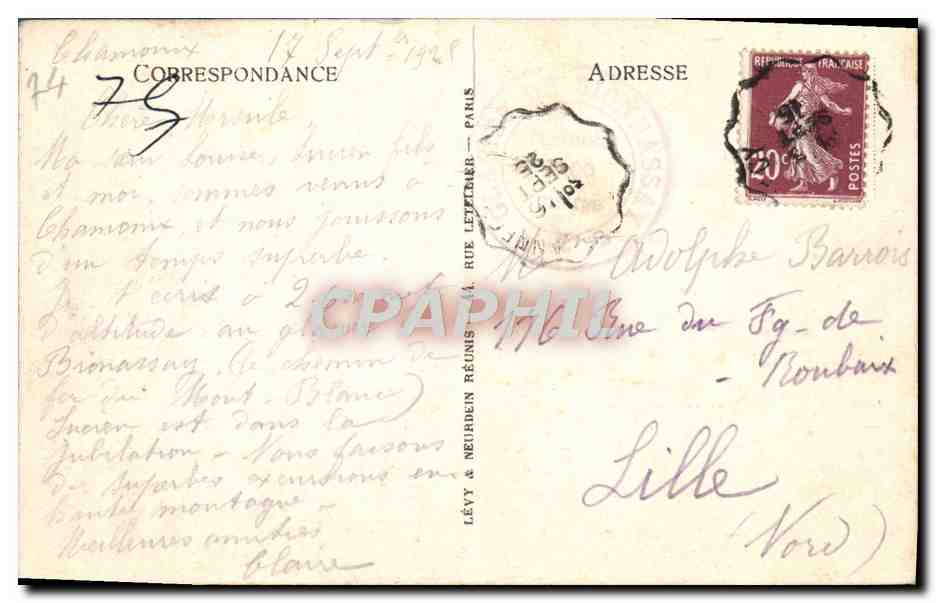 Chamonix 17 Sept. 1928
74
75
CORRESPONDANCE
Chère
Ma Louise, Lucien fils
et moi, sommes venus à
Chamonix, et nous jouissons
d'un temps superbe.
Je t'écris à 2
d'altitude au glacier
Bionnassay (le chemin de
fer du Mont-Blanc)
Lucien est dans la
jubilation - Nous faisons
de superbes excursions en
haute montagne
Meilleures amitiés
Claire
LÉVY & NEURDEIN RÉUNIS. 44. RUE LETELLIER — PARIS
ADRESSE
RÉPUBLIQUE FRANÇAISE
20c
POSTES
Adolphe Barrois
176 Rue du Fg-de
- Roubaix
Lille
(Nord)
CPAPHIL